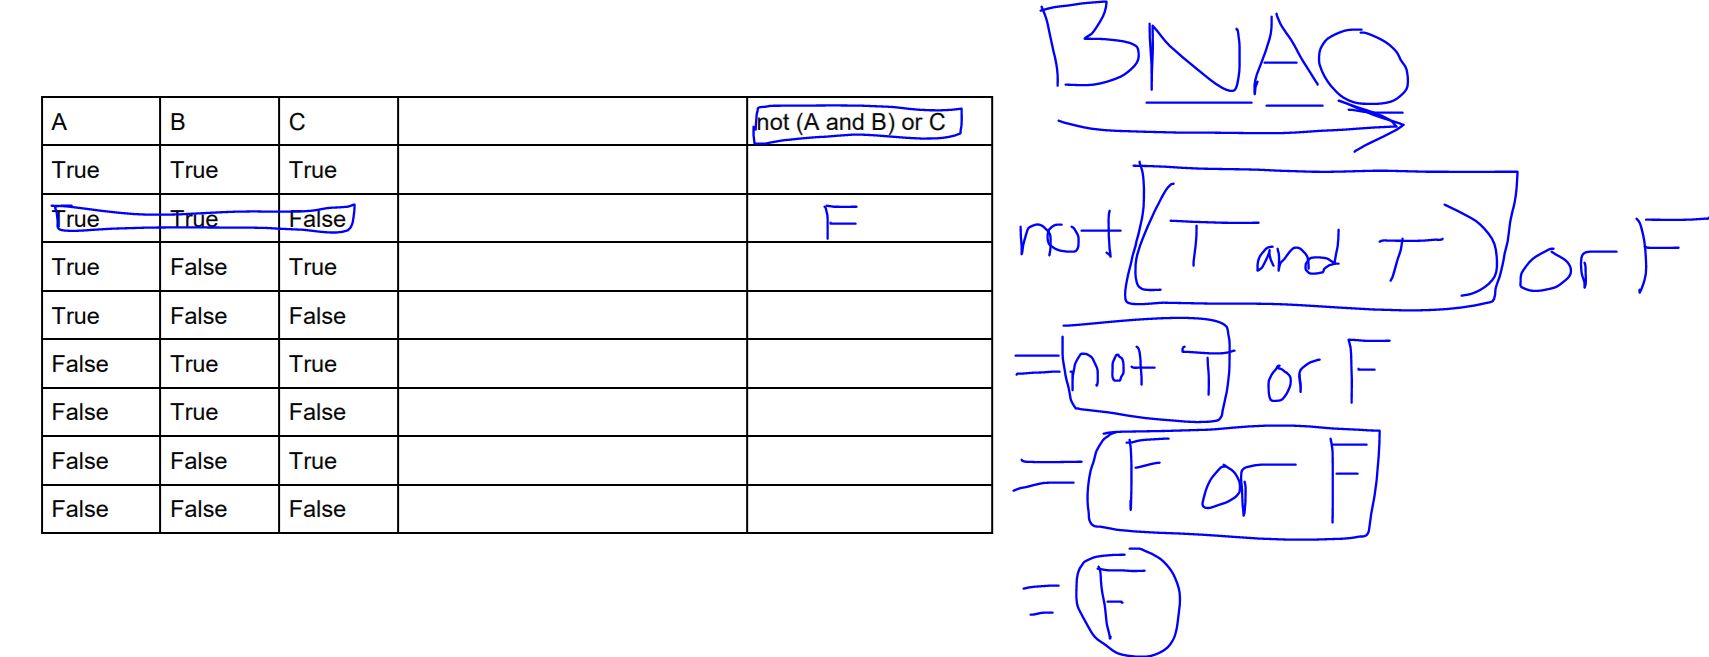 BNAO
A B C not (A and B) or C
True True True
True True False F
True False True
True False False
False True True
False True False
False False True
False False False
not (T and T) or F
= not T or F
= F or F
= F